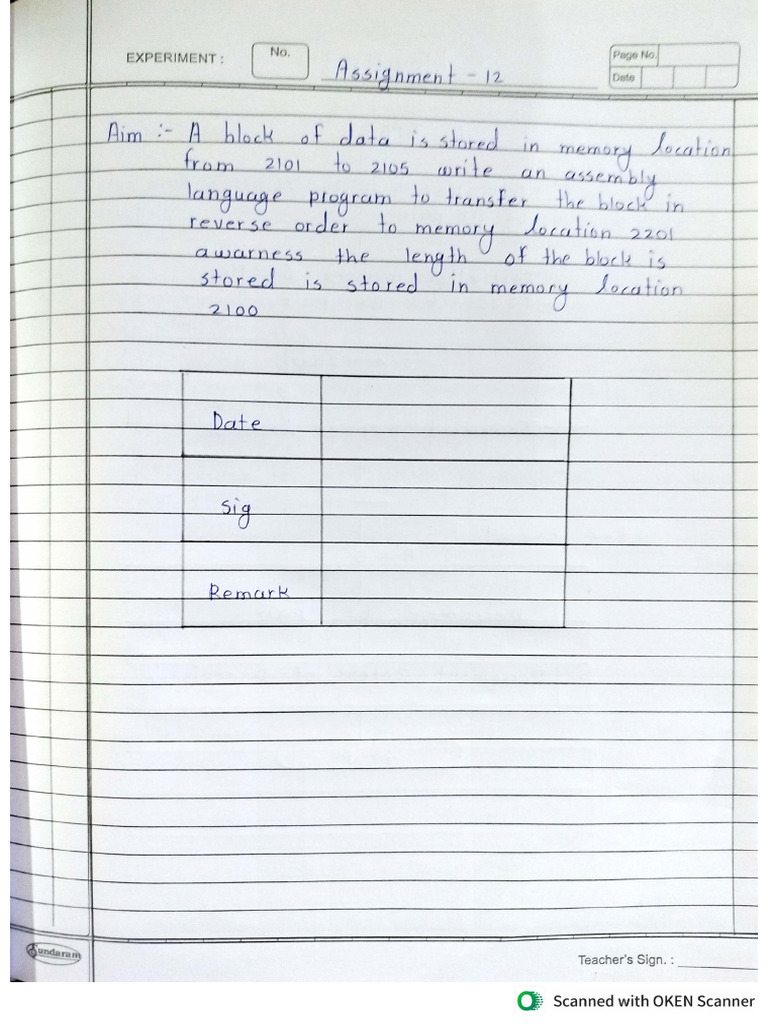 EXPERIMENT : No. Assignment - 12
Page No.
Date
Aim :- A block of data is stored in memory location
from 2101 to 2105 write an assembly
language program to transfer the block in
reverse order to memory location 2201
awarness the length of the block is
stored is stored in memory location
2100
Date
Sig
Remark
Sundaram
Teacher's Sign. :
Scanned with OKEN Scanner